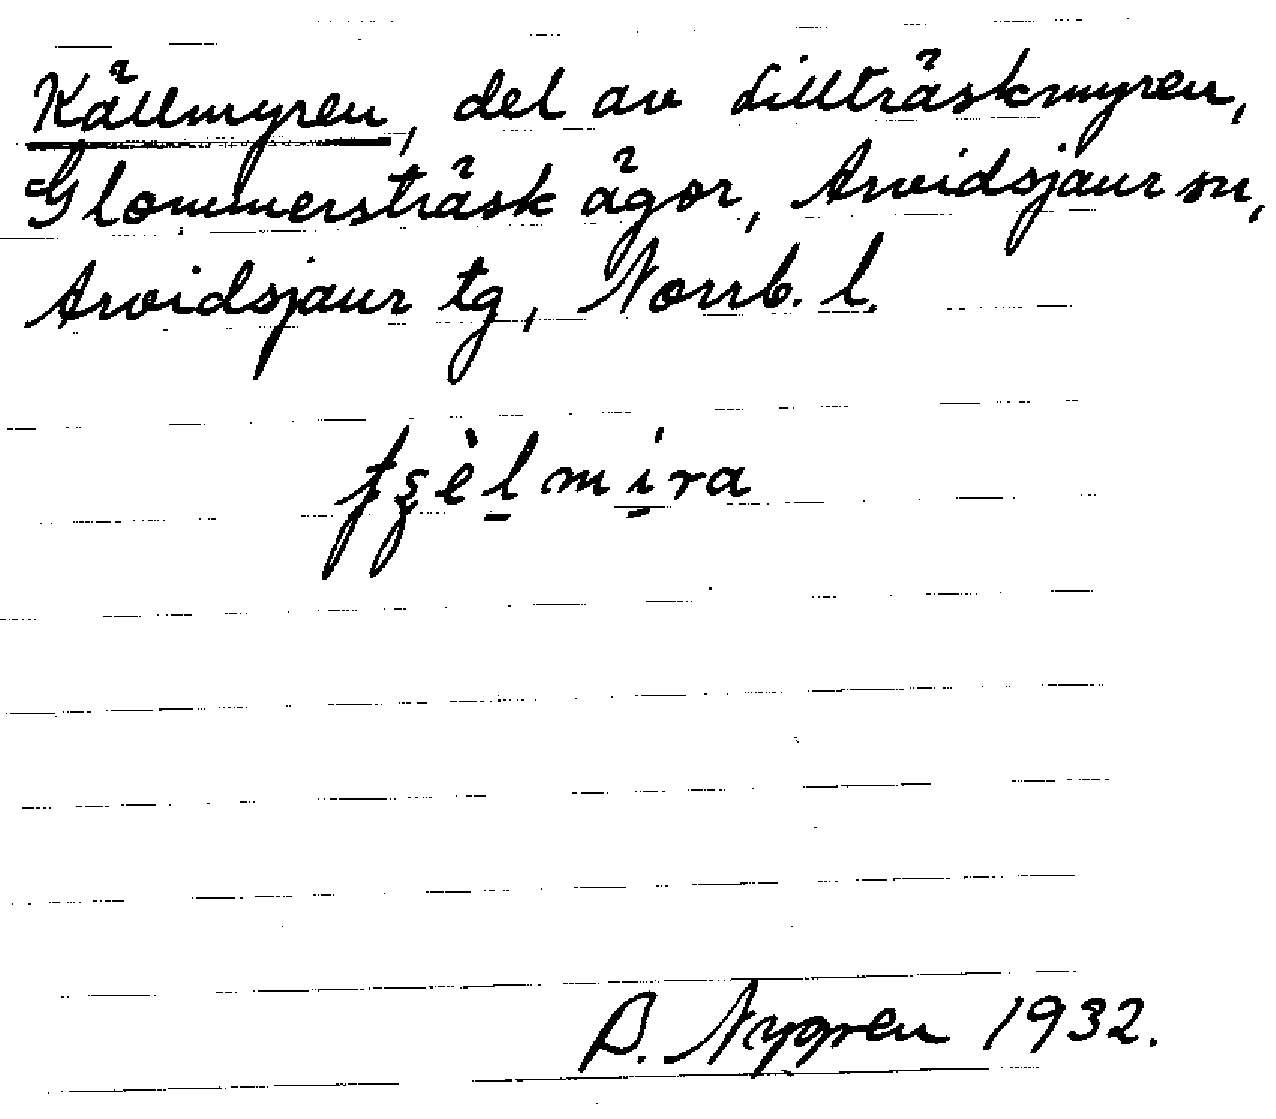 Källmyren, del av Lillträskmyren,
Glommersträsk ägor, Arvidsjaur sn,
Arvidsjaur tg, Norrb. l.
B. Nygren 1932.